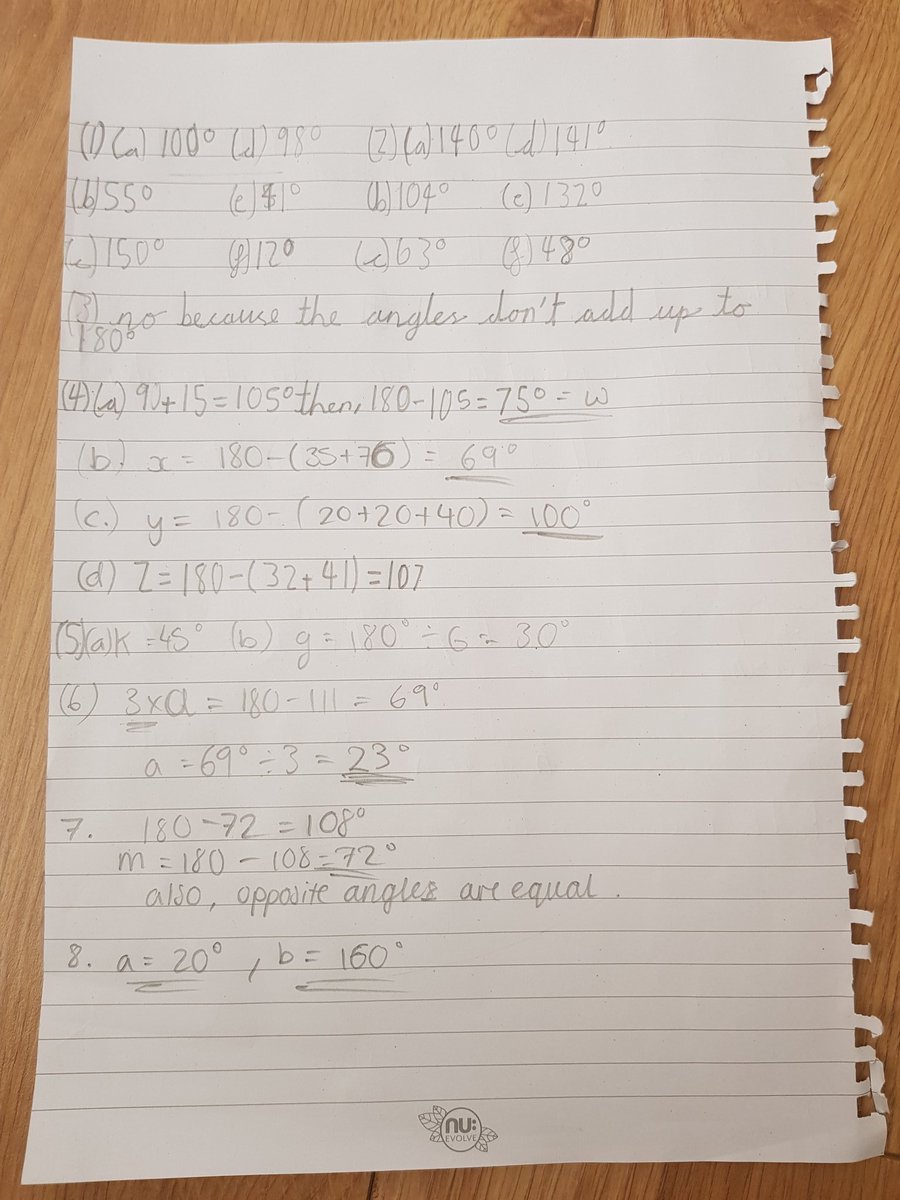 (1) (a) 100° (d) 98° (2) (a) 140° (d) 141°
(b) 55° (e) 41° (b) 104° (e) 132°
(c) 150° (f) 12° (c) 63° (f) 48°
(3) no because the angles don't add up to
180°
(4) (a) 90+15=105° then, 180-105=75°=w
(b) x = 180-(35+76) = 69°
(c.) y = 180-(20+20+40) = 100°
(d) Z=180-(32+41)=107
(5)(a) K =45° (b) g = 180° ÷ 6 = 30°
(6) 3×a = 180-111 = 69°
a = 69° ÷ 3 = 23°
7. 180-72 = 108°
m = 180 - 108 = 72°
also, opposite angles are equal.
8. a = 20°, b = 160°
nu:
EVOLVE